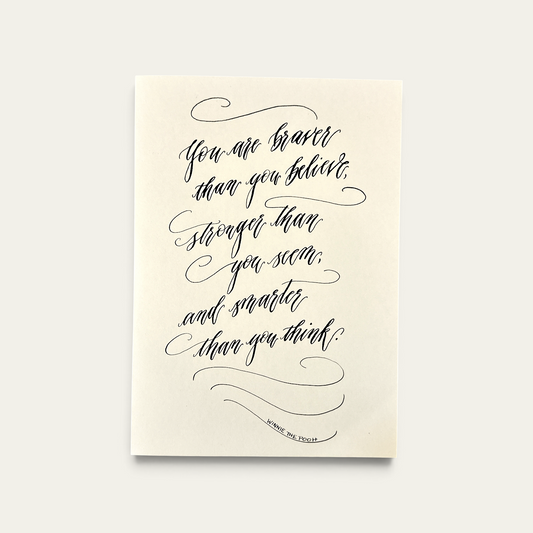 You are braver
than you believe,
stronger than
you seem,
and smarter
than you think.
WINNIE THE POOH